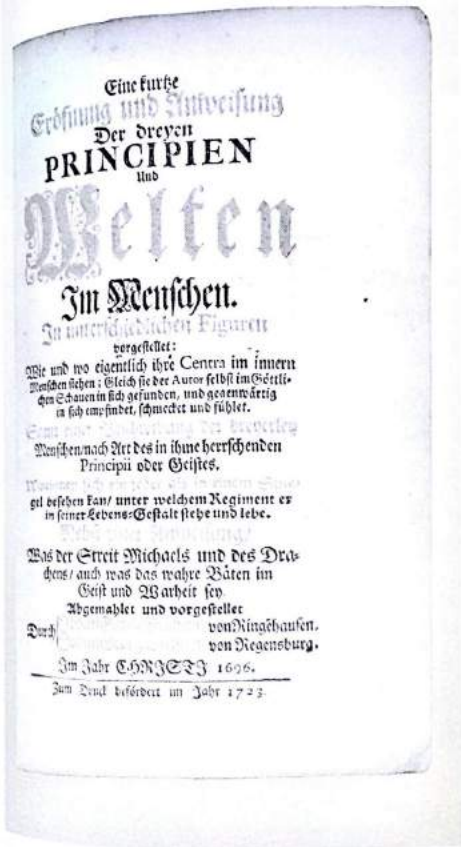 Eine kurtze
Eröfnung und Anweisung
Der dreyen
PRINCIPIEN
Und
Welten
Im Menschen.
In unterschiedlichen Figuren
vorgestellet:
Wie und wo eigentlich ihre Centra im innern
Menschen stehen; Gleich sie der Autor selbst im Göttli-
chen Schauen in sich gefunden, und gegenwärtig
in sich empfindet, schmecket und fühlet.
Samt einer Beschreibung der dreyerley
Menschen/nach Art des in ihme herrschenden
Principii oder Geistes.
Worinnen sich ein jeder als in einem Spie-
gel besehen kan/ unter welchem Regiment er
in seiner Lebens-Gestalt stehe und lebe.
Nebst einer
Was der Streit Michaels und des Dra-
chens/ auch was das wahre Bäten im
Geist und Warheit sey
Abgemahlet und vorgestellet
Durch
von Ringehausen.
von Regensburg.
Im Jahr CHRISTI 1696.
Zum Druck befördert im Jahr 1723